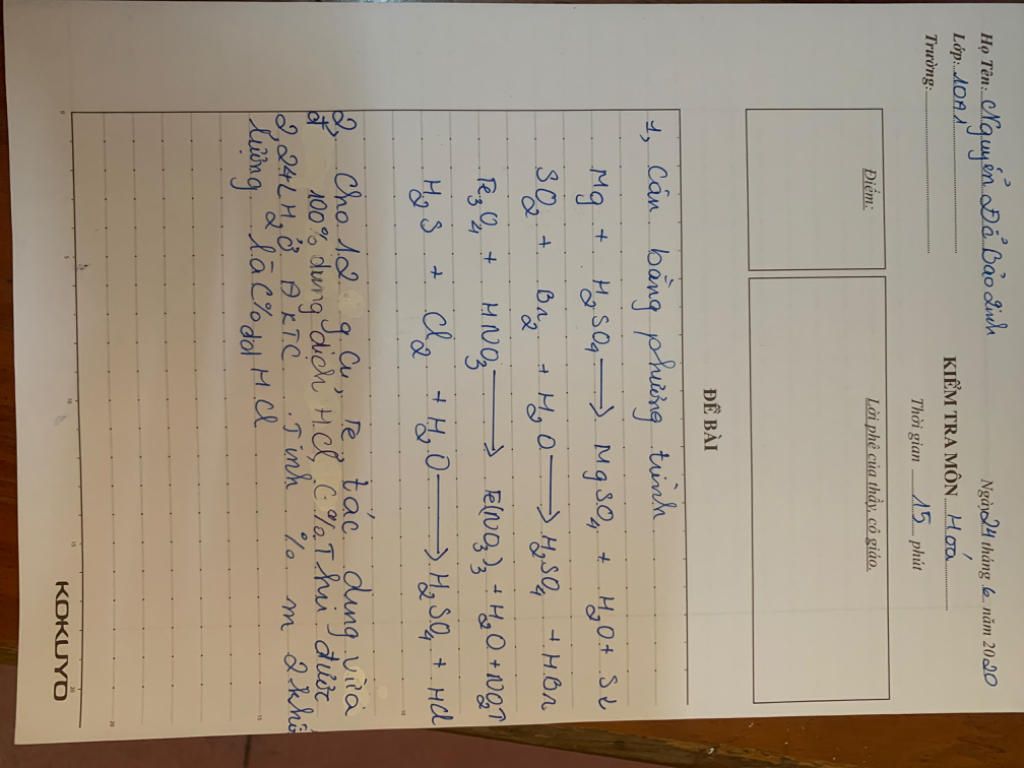 Họ Tên: Nguyễn Đỗ Bảo Linh Ngày 24 tháng 6 năm 2020
Lớp: 10A1 KIỂM TRA MÔN Hoá
Trường: Thời gian 15 phút
Điểm: Lời phê của thầy, cô giáo.
ĐỀ BÀI
1, Cân bằng phương trình
Mg + H2SO4 → MgSO4 + H2O +
SO2 + Br2 + H2O → H2SO4 + HBr
Fe3O4 + HNO3 → Fe(NO3)3 + H2O + NO2↑
H2S + Cl2 + H2O → H2SO4 + HCl
2, Cho 12 g Cu, Fe tác dụng vừa
đ 100% dung dịch HCl C% Thu được
2,24L H2 ở ĐKTC. Tính % m 2 khối
lượng 2 là C% dd HCl
KOKUYO